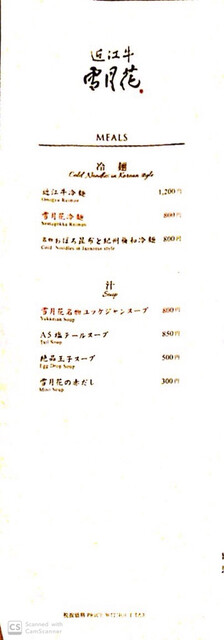 近江牛
雪月花
MEALS
冷麺
Cold Noodles in Korean style
近江牛冷麺 1,200円
Omigyu Raimen
雪月花冷麺 800円
Setsugekka Raimen
名物おぼろ昆布と紀州梅初冷麺 800円
Cold Noodles in Japanese style
汁
Soup
雪月花名物ユッケジャンスープ 800円
Yukkejan Soup
A5塩テールスープ 850円
Tail Soup
絶品玉子スープ 500円
Egg Drop Soup
雪月花の赤だし 300円
Miso Soup
CS Scanned with
CamScanner